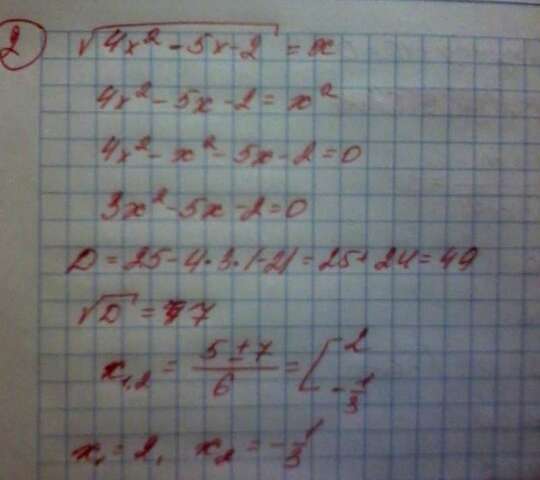 2 √(4x² - 5x - 2) = x
4x² - 5x - 2 = x²
4x² - x² - 5x - 2 = 0
3x² - 5x - 2 = 0
D = 25 - 4·3·(-2) = 25 + 24 = 49
√D = 7
x₁,₂ = (5 ± 7)/6 = [2; -1/3
x₁ = 2, x₂ = -1/3